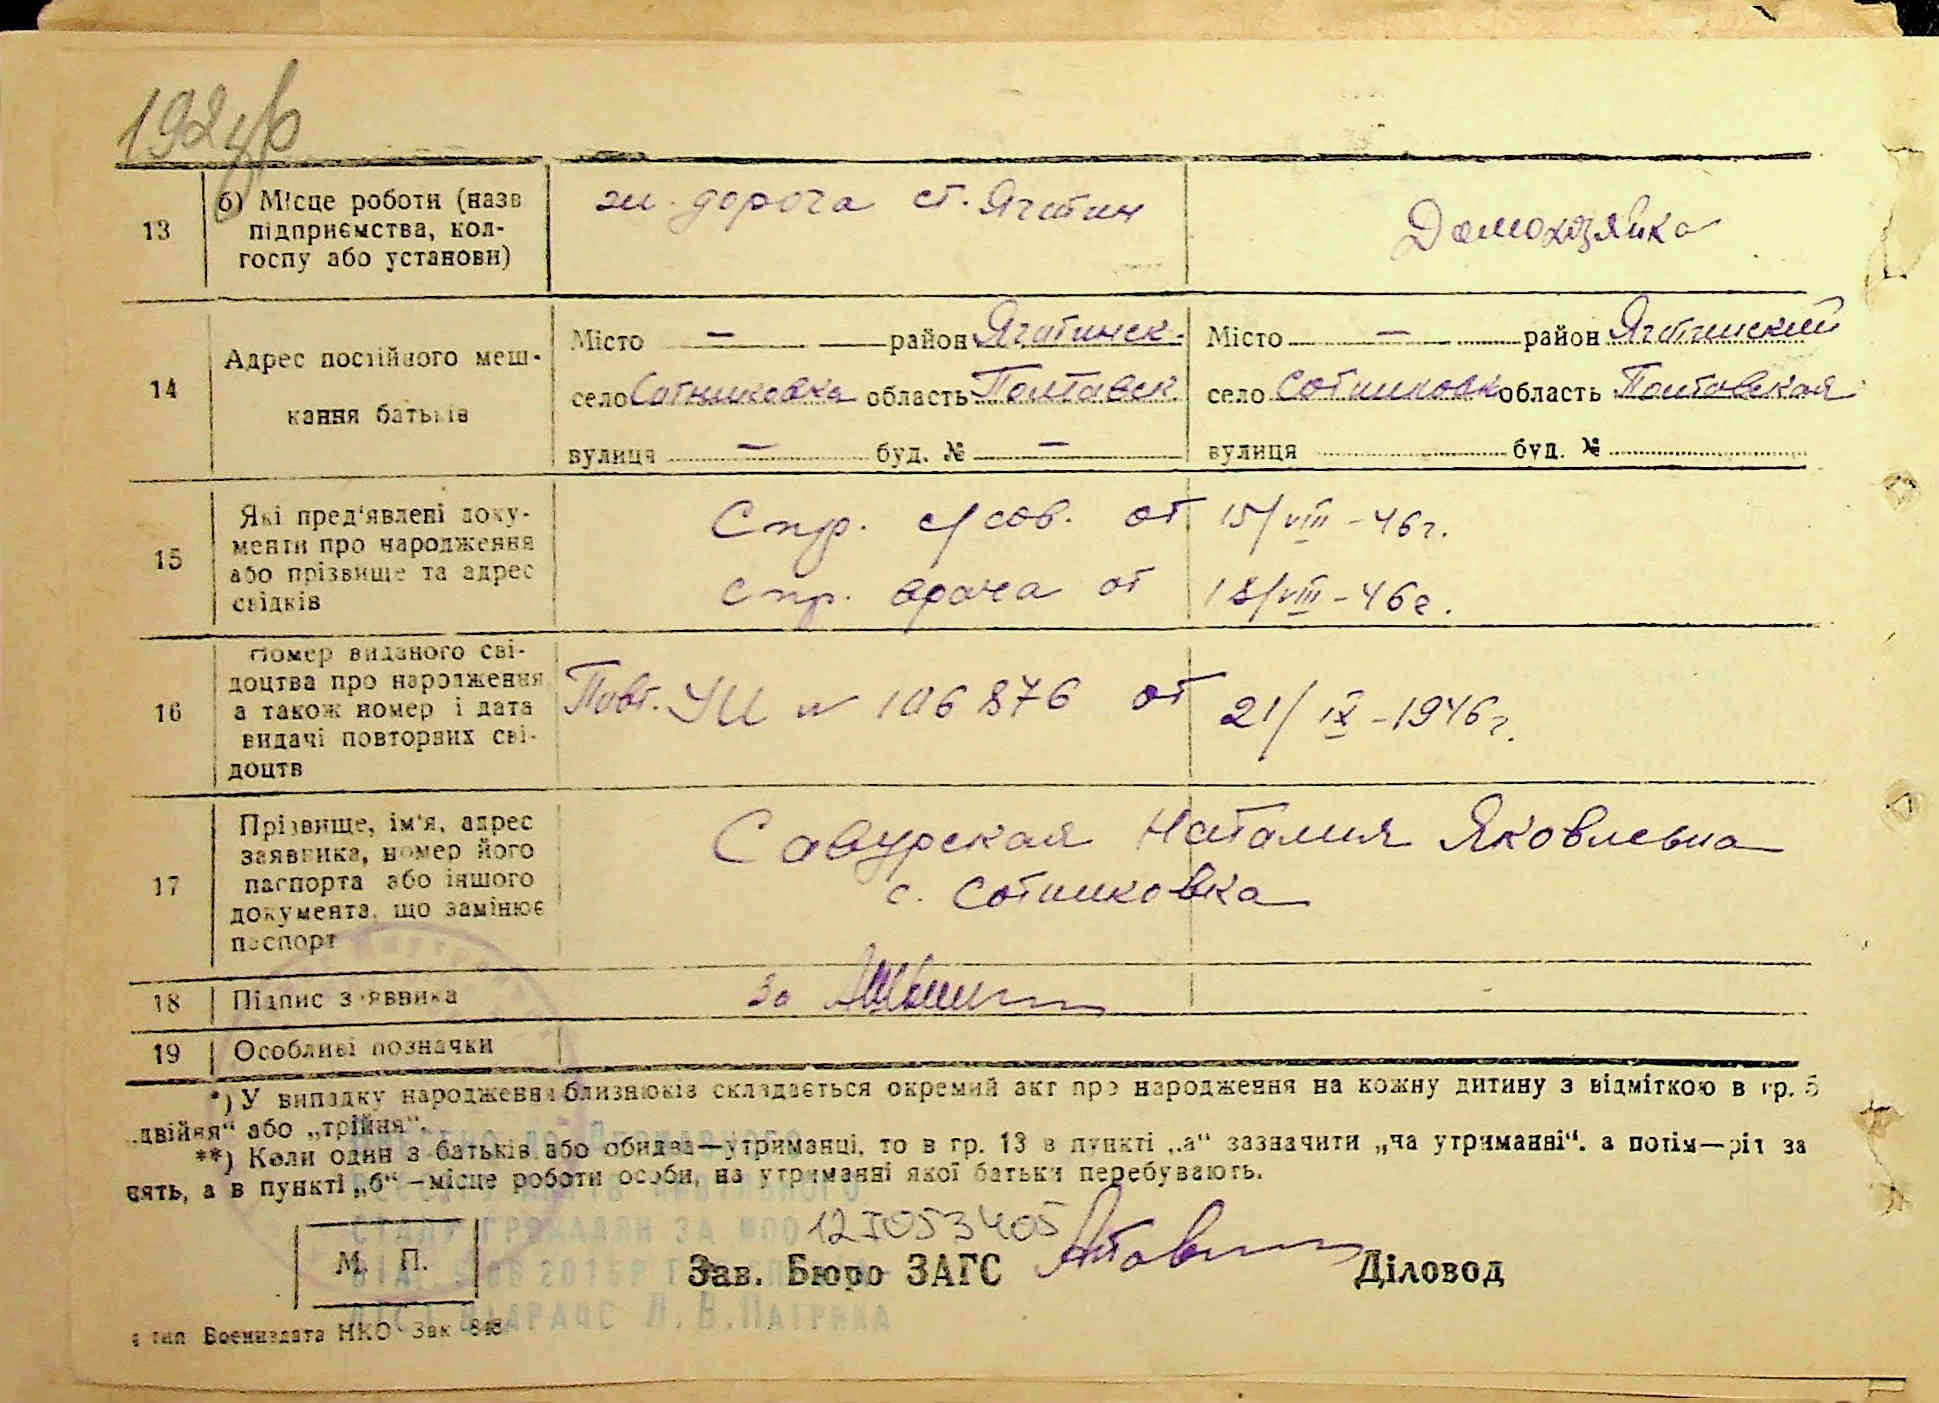 13 б) Місце роботи (назв
підприємства, кол-
госпу або установи)
жел. дорога ст. Яготин
Домохозяйка
14 Адрес постійного меш-
кання батьків
Місто — район Яготинск.
село Сотниковка область Полтавск
вулиця — буд. № —
Місто — район Яготинский
село Сотниковк область Полтавская
вулиця буд. №
15 Які пред'явлені доку-
менти про народження
або прізвище та адрес
свідків
Спр. с/сов. от 15/VIII-46г.
Спр. врача от 18/VIII-46г.
16 Номер виданого сві-
доцтва про народження
а також номер і дата
видачі повторних сві-
доцтв
Повт. УШ № 106876 от 21/IX-1946г.
17 Прізвище, ім'я, адрес
заявника, номер його
паспорта або іншого
документа, що замінює
паспорт
Савурская Наталия Яковлевна
с. Сотниковка
18 Підпис заявника
за
19 Особливі позначки
*) У випадку народження близнюків складається окремий акт про народження на кожну дитину з відміткою в гр. 5
„двійня“ або „трійня“.
**) Коли один з батьків або обидва—утриманці, то в гр. 13 в пункті „а“ зазначити „на утриманні“, а потім—рід за
нять, а в пункті „б“—місце роботи особи, на утриманні якої батьки перебувають.
СТАНУ ГРОМАДЯН ЗА
12I053405
М. П.
Зав. Бюро ЗАГС
Діловод
тип Воениздата НКО Зак 848